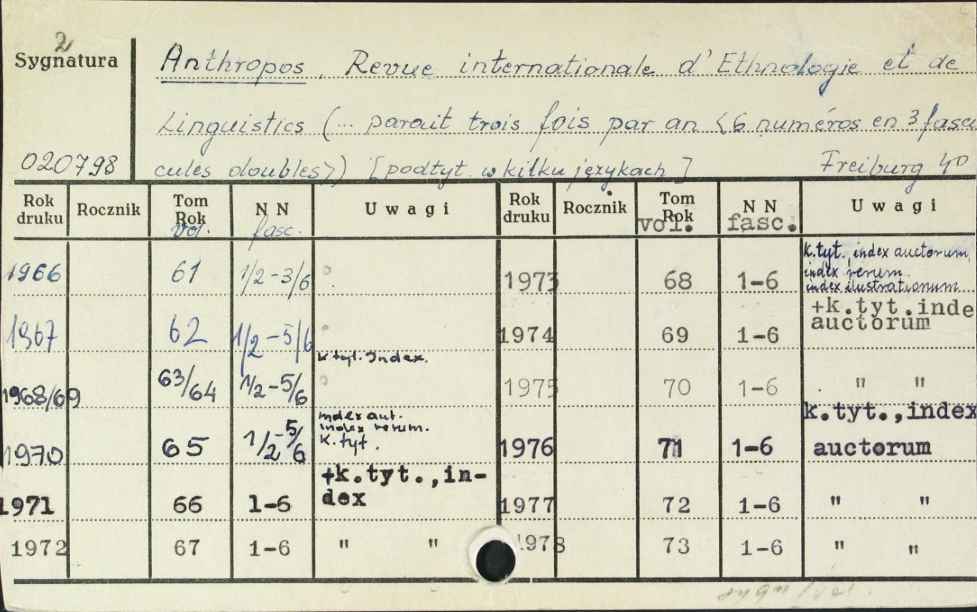 2
Sygnatura
Anthropos, Revue internationale d'Ethnologie et de
Linguistics (... paraît trois fois par an <6 numéros en 3 fasci
020798 cules doubles>) [podtyt. w kilku językach] Freiburg 4D
Rok druku Rocznik Tom Rok vol. N N fasc. Uwagi Rok druku Rocznik Tom Rok vol. N N fasc. Uwagi
1966 61 1/2-3/6 1973 68 1-6 k.tyt. index auctorum, index rerum. index ilustrationum
1967 62 1/2-5/6 1974 69 1-6 +k.tyt.inde auctorum
1968/69 63/64 1/2-5/6 k tyt. Index. 1975 70 1-6 " "
1970 65 1/2-5/6 index aut. index rerum. k.tyt. 1976 71 1-6 k.tyt.,index auctorum
1971 66 1-6 +k.tyt.,in-dex 1977 72 1-6 " "
1972 67 1-6 " " 1978 73 1-6 " "